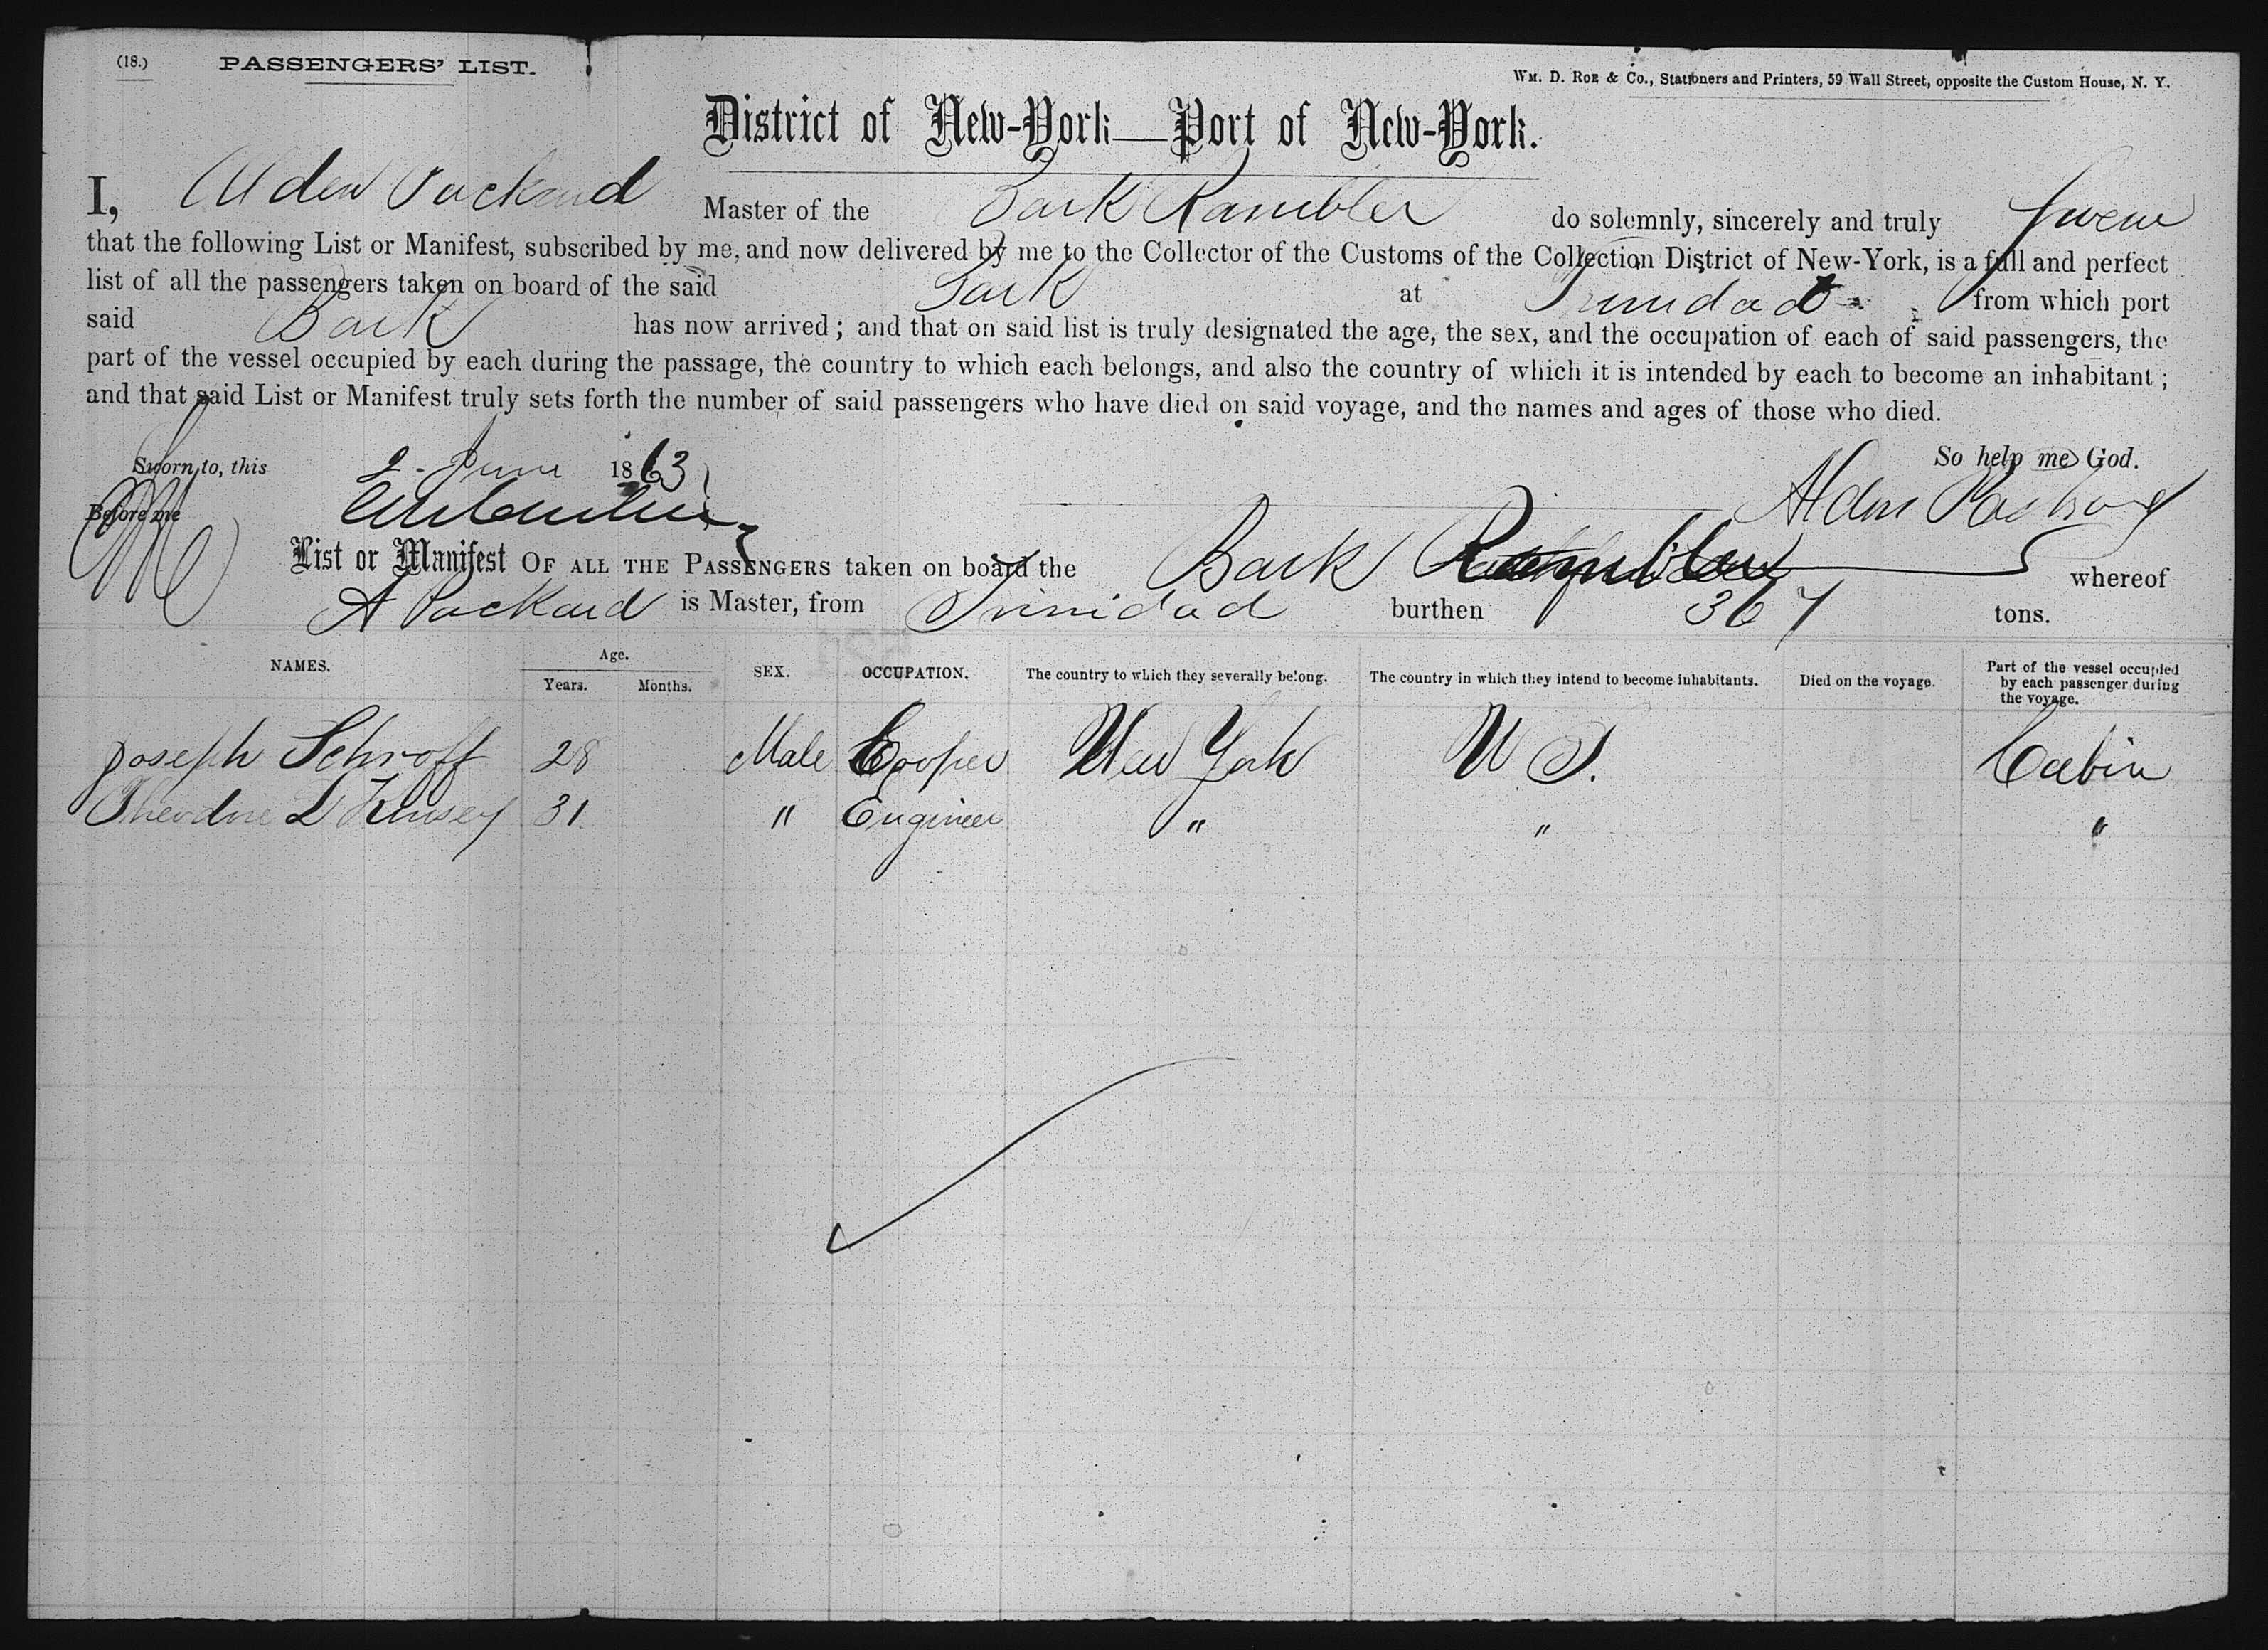 (18.) PASSENGERS' LIST.
Wm. D. Roe & Co., Stationers and Printers, 59 Wall Street, opposite the Custom House, N. Y.
District of New-York—Port of New-York.
I, Alden Packard Master of the Bark Rambler do solemnly, sincerely and truly swear
that the following List or Manifest, subscribed by me, and now delivered by me to the Collector of the Customs of the Collection District of New-York, is a full and perfect
list of all the passengers taken on board of the said Bark at Trinidad from which port
said Bark has now arrived; and that on said list is truly designated the age, the sex, and the occupation of each of said passengers, the
part of the vessel occupied by each during the passage, the country to which each belongs, and also the country of which it is intended by each to become an inhabitant;
and that said List or Manifest truly sets forth the number of said passengers who have died on said voyage, and the names and ages of those who died.
Sworn to, this 2 June 1863 So help me God.
Before me Alden Packard
List or Manifest OF ALL THE PASSENGERS taken on board the Bark Rambler whereof
A Packard is Master, from Trinidad burthen 367 tons.
NAMES. Age. Years. Months. SEX. OCCUPATION. The country to which they severally belong. The country in which they intend to become inhabitants. Died on the voyage. Part of the vessel occupied by each passenger during the voyage.
Joseph Schroff 28 Male Cooper New York U S. Cabin
Theodore L Kinsey 31 " Engineer " " "